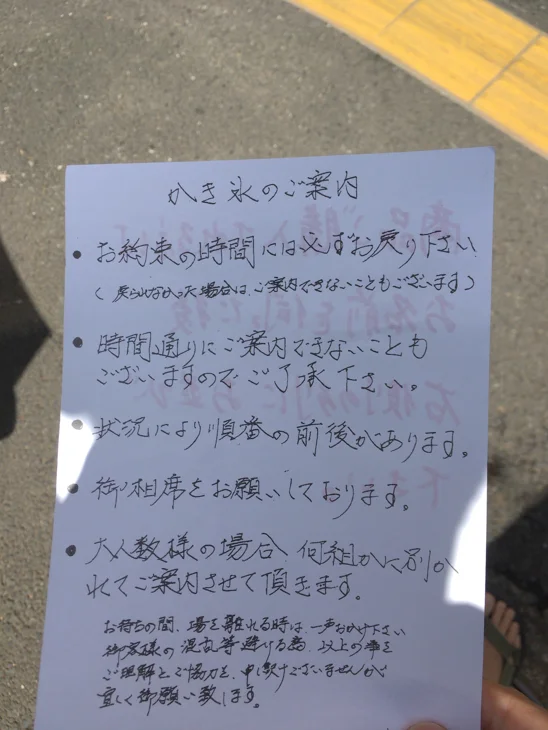 かき氷のご案内
• お約束の時間には必ずお戻り下さい
(戻られなかった場合は、ご案内できないこともございます)
• 時間通りにご案内できないことも
ございますのでご了承下さい。
• 状況により順番の前後があります。
• 御相席をお願いしております。
• 大人数様の場合、何組かに別か
れてご案内させて頂きます。
お待ちの間、場を離れる時は、一声おかけ下さい
御客様の混乱等避ける為、以上の事を
ご理解とご協力を、申し訳ございませんが
宜しく御願い致します。